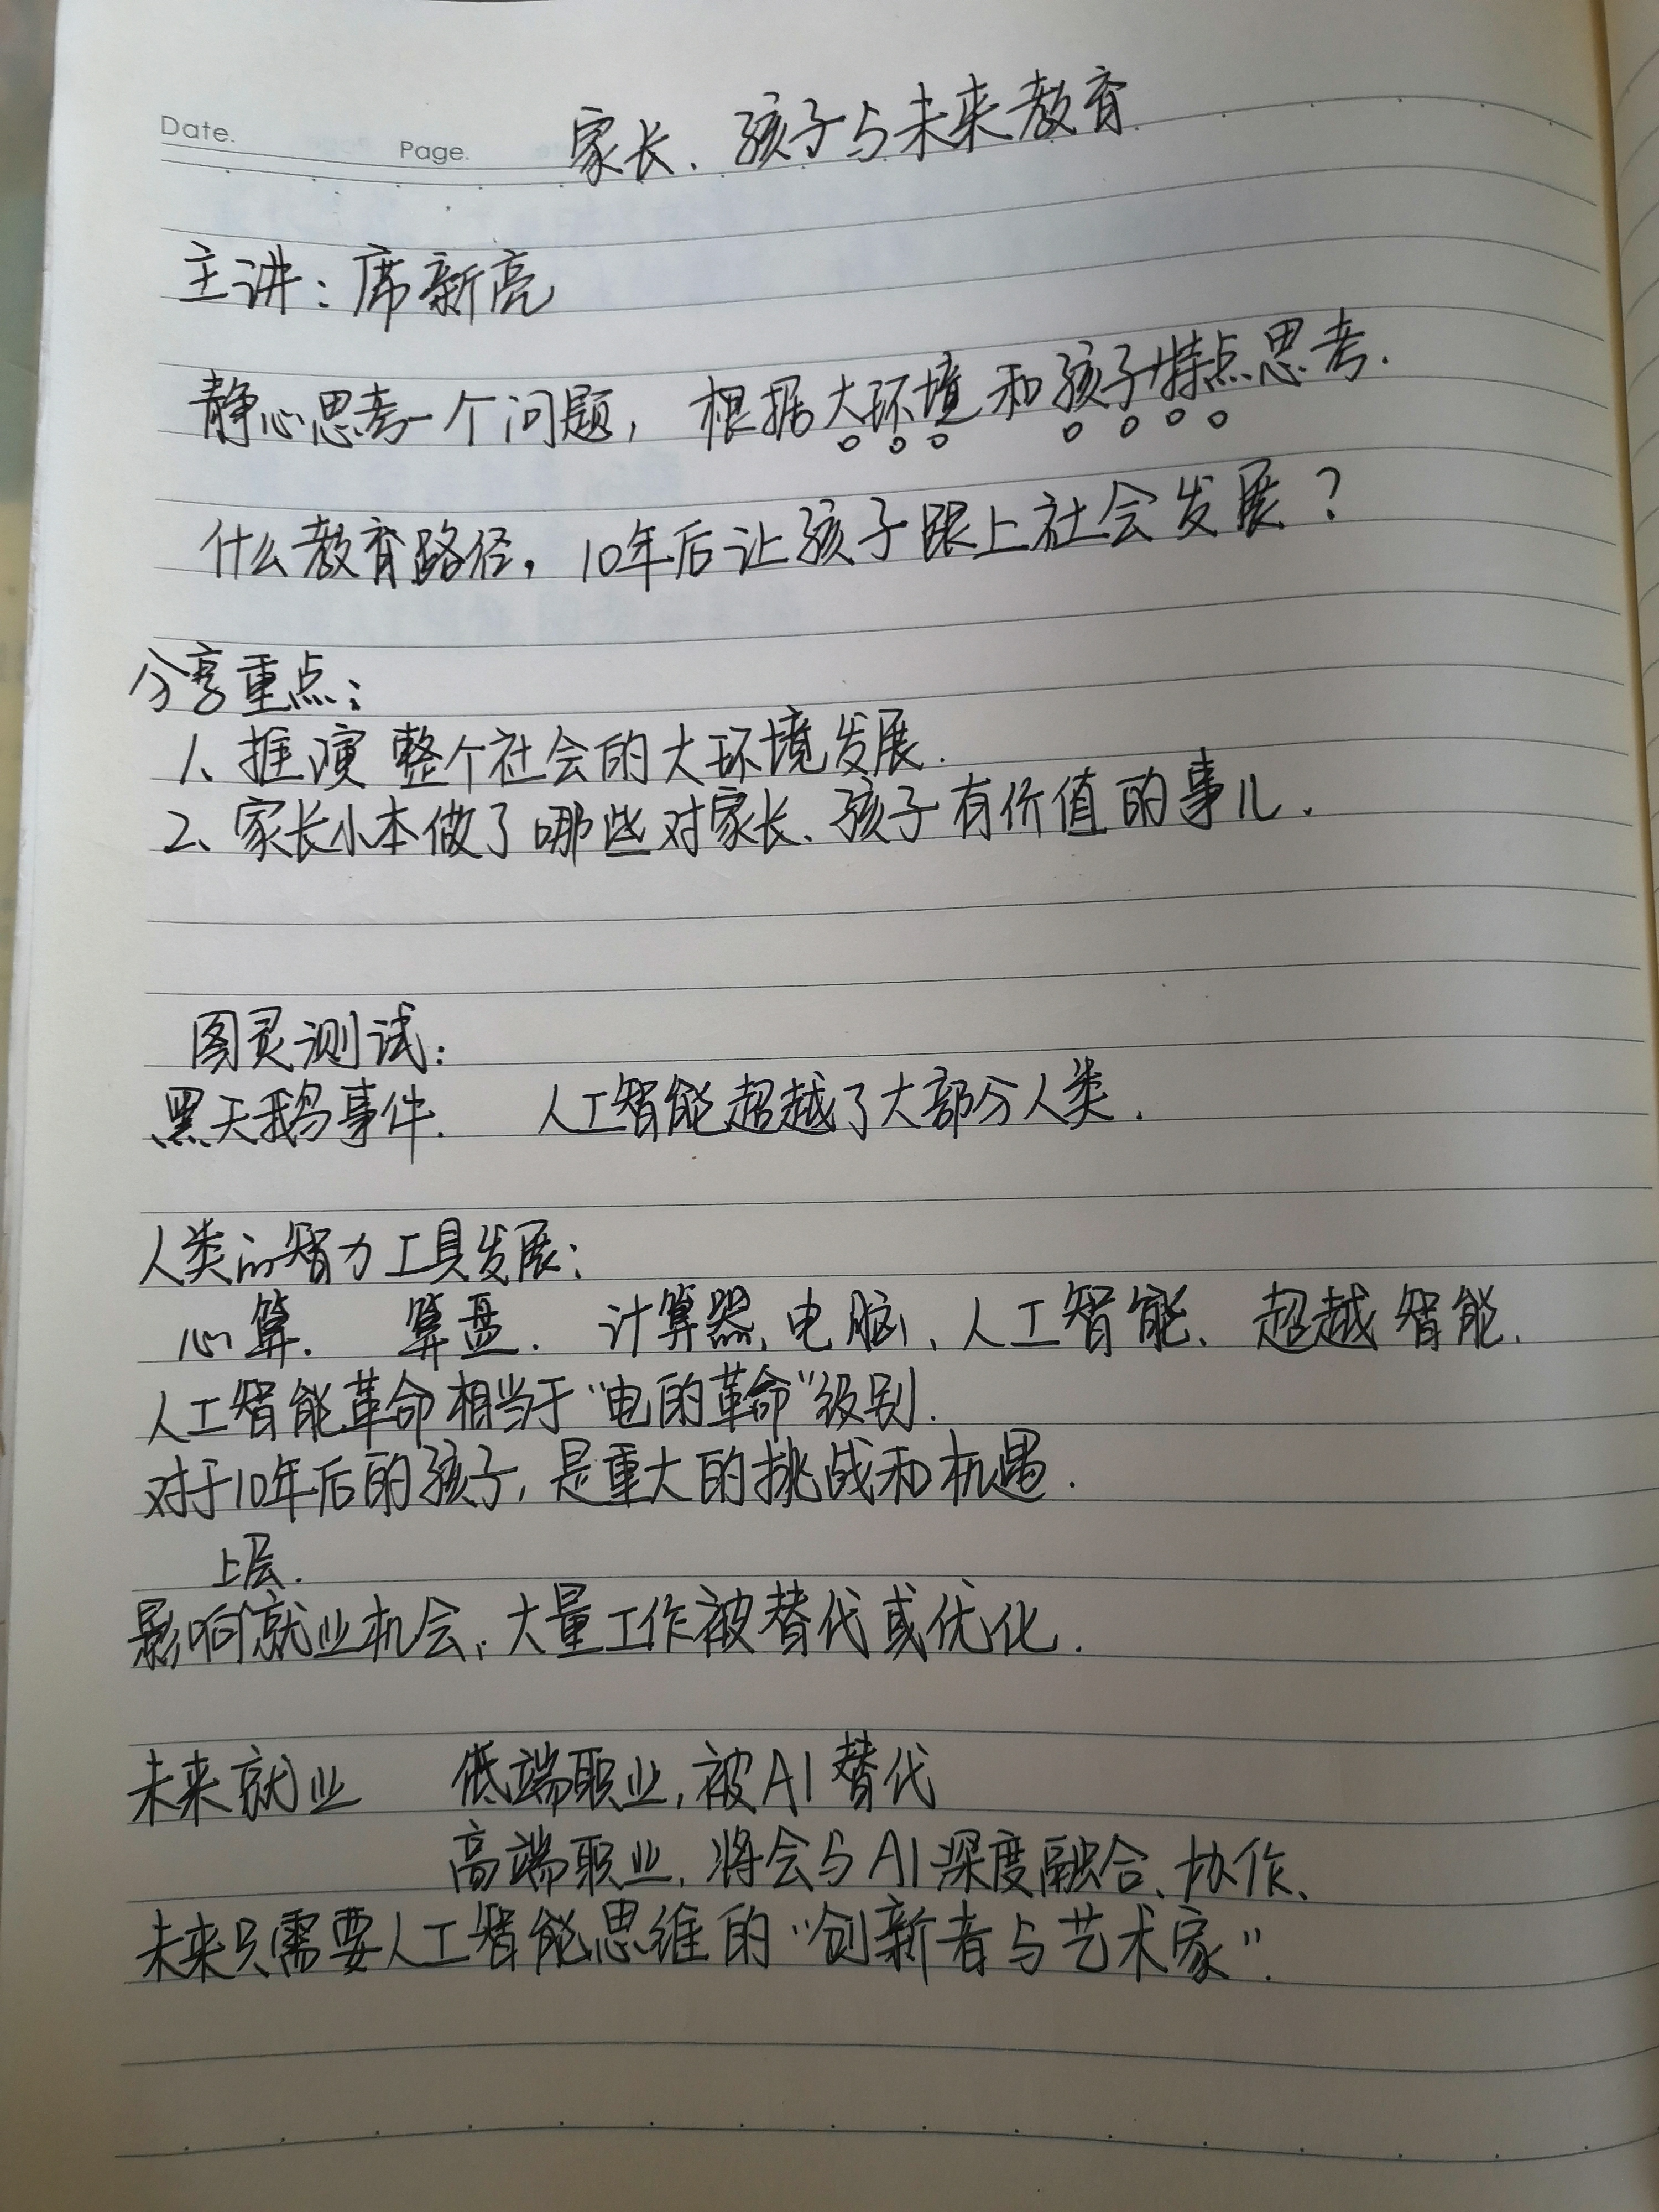 Date.
Page.
家长、孩子与未来教育
主讲：席新亮
静心思考一个问题，根据大环境和孩子特点思考.
什么教育路径，10年后让孩子跟上社会发展？
分享重点：
1、推演整个社会的大环境发展.
2、家长小本做了哪些对家长、孩子有价值的事儿.
图灵测试：
黑天鹅事件. 人工智能超越了大部分人类.
人类的智力工具发展：
心算. 算盘. 计算器、电脑、人工智能、超越智能.
人工智能革命相当于“电的革命”级别.
对于10年后的孩子，是重大的挑战和机遇.
上层.
影响就业机会，大量工作被替代或优化.
未来就业 低端职业，被AI替代
高端职业，将会与AI深度融合、协作、
未来只需要人工智能思维的“创新者与艺术家”.